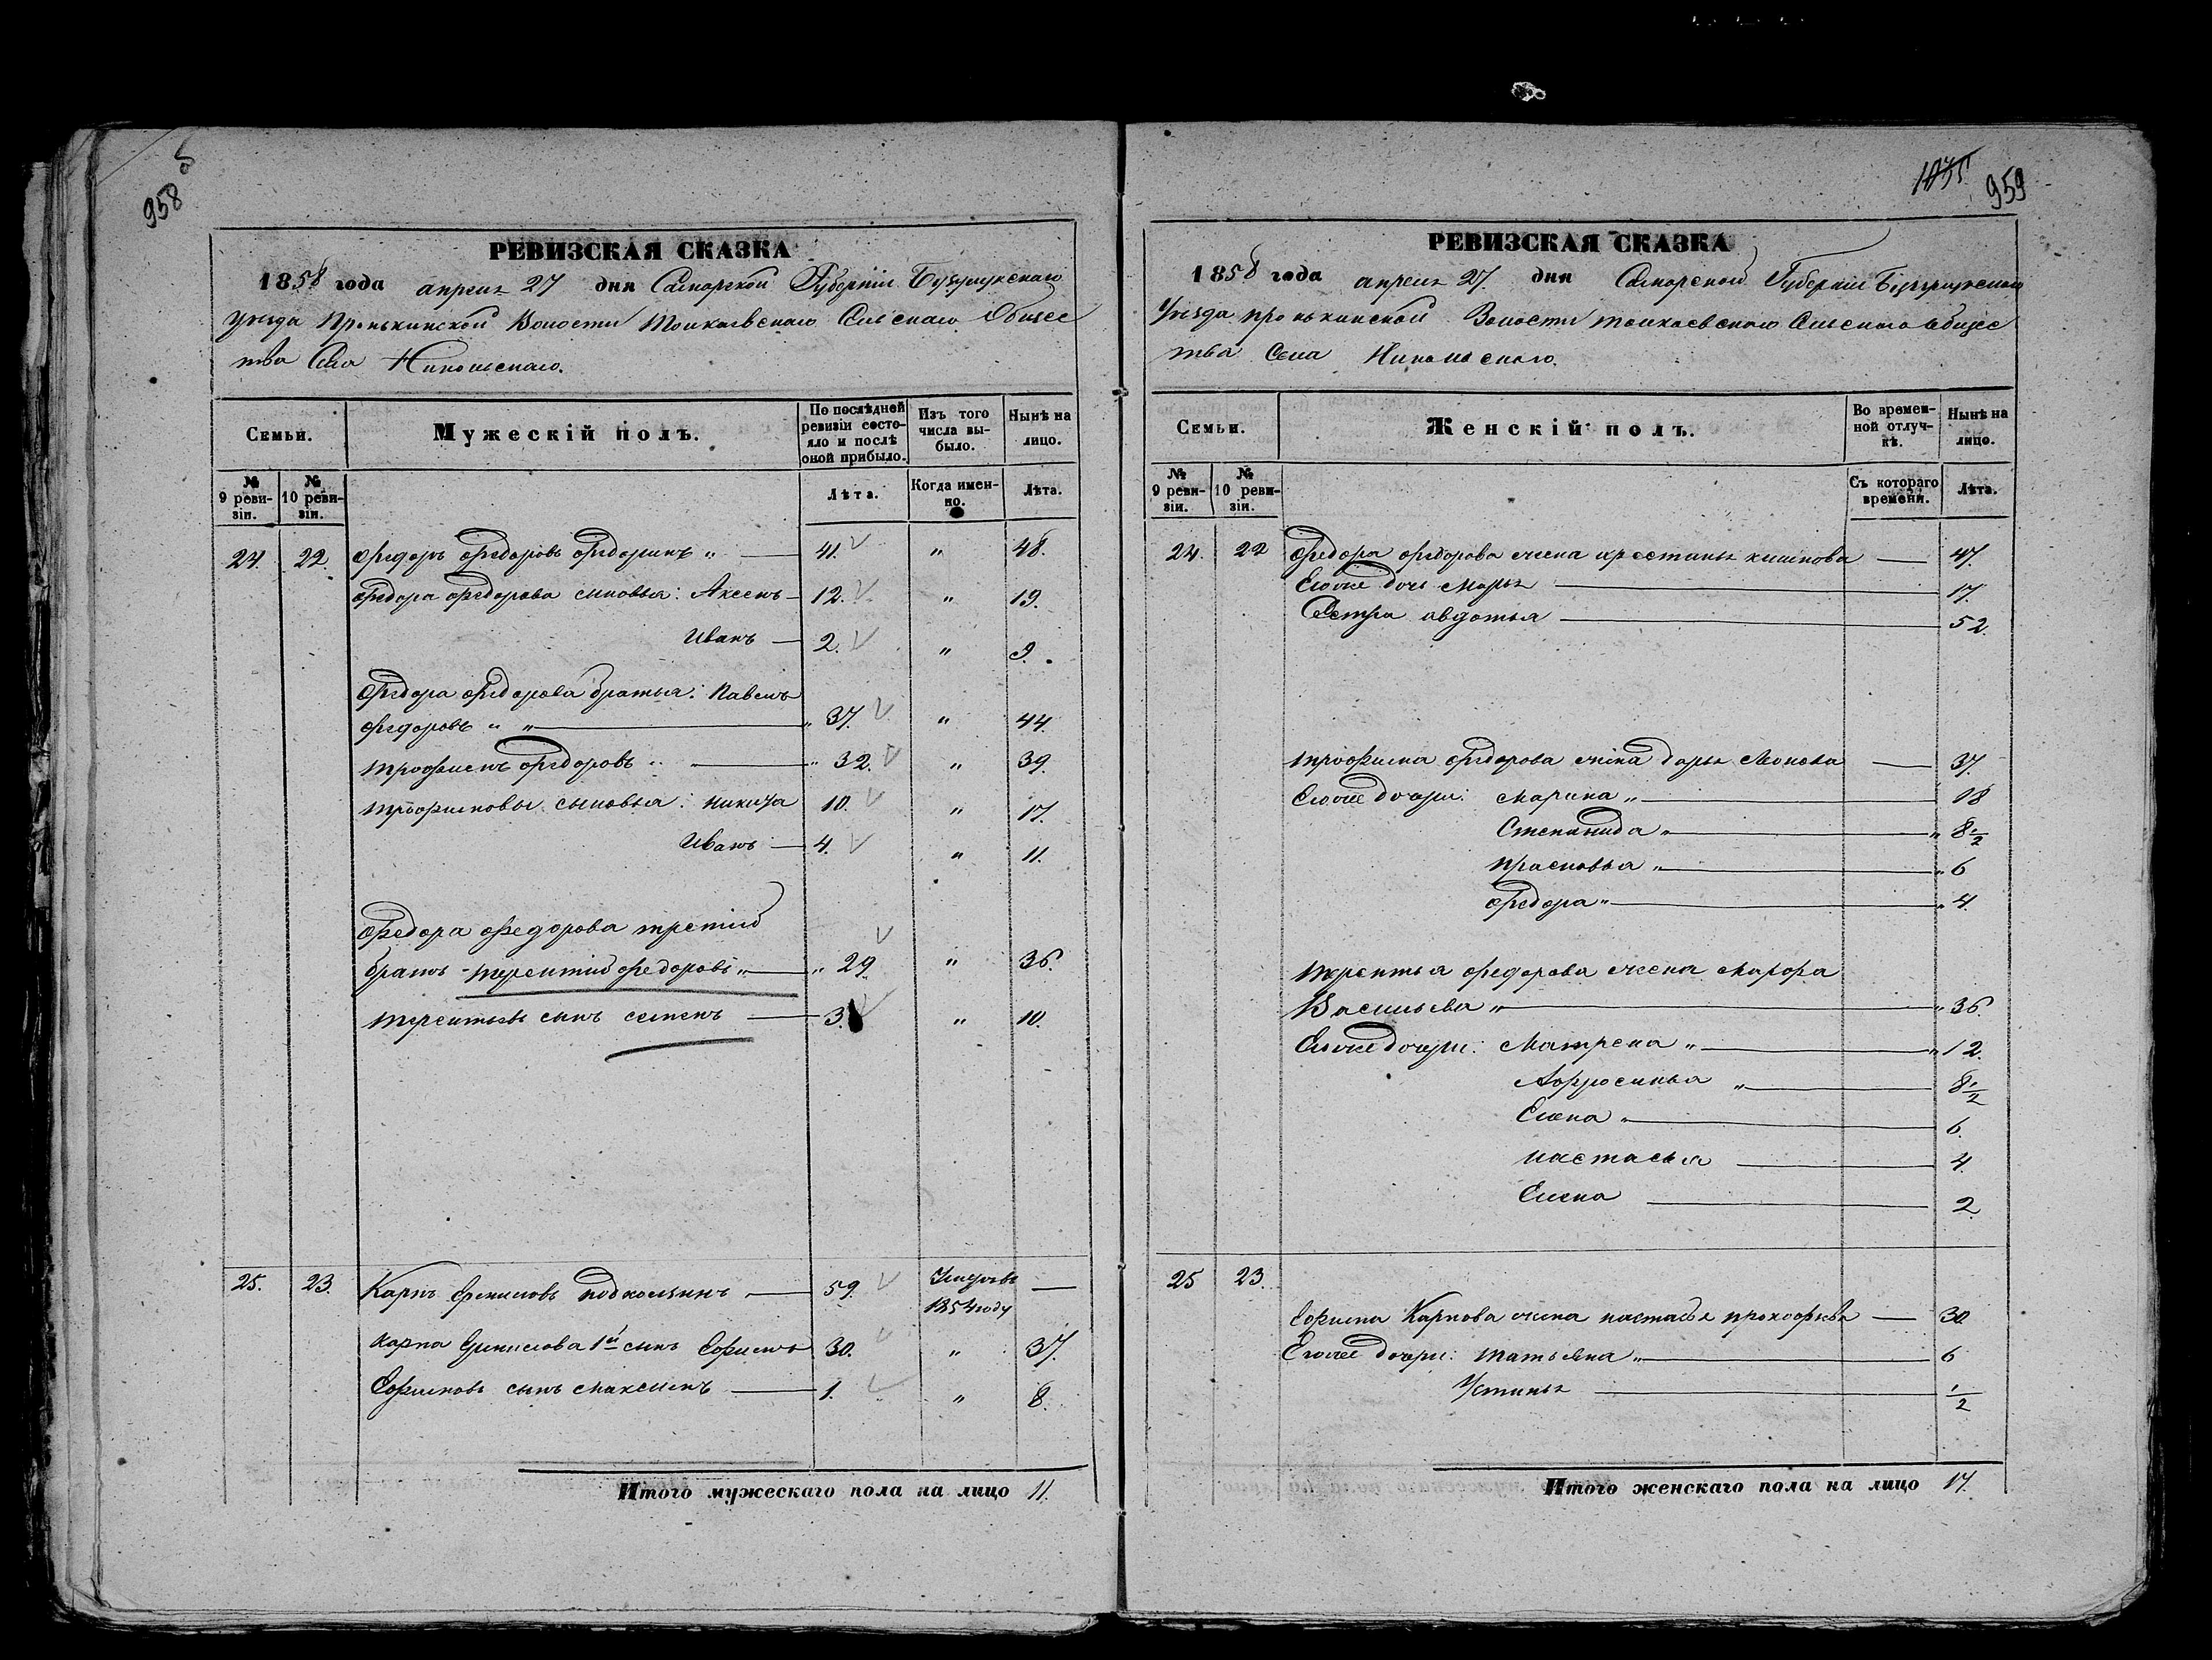 958
об
РЕВИЗСКАЯ СКАЗКА
1858 года апреля 27 дня Самарской Губернии Бузулукскаго
уезда Пронькинской Волости Толкаевскаго Сельскаго Общес
тва Села Никольскаго.
Семьи.
Мужескій полъ.
По послѣдней ревизіи состояло и послѣ оной прибыло.
Изъ того числа выбыло.
Нынѣ на лицо.
№ 9 ревизіи.
№ 10 ревизіи.
Лѣта.
Когда именно.
Лѣта.
24. 22. Федоръ Федоровъ Федоринъ „ — 41. „ 48.
Федора Федорова сыновья: Аксенъ — 12. „ 19.
Иванъ — 2. „ 9.
Федора Федорова братья: Павелъ
Федоровъ „ „ — „ 37. „ 44.
Трофимъ Федоровъ „ — „ 32. „ 39.
Трофимовы сыновья: Никита 10. „ 17.
Иванъ — 4. „ 11.
Федора Федорова третий
братъ - Терентий Федоровъ „ — „ 29. „ 36.
Терентьевъ сынъ Семенъ — 3. „ 10.
25. 23. Карпъ подкользинъ — 59. Умеръ въ —
1854 году
Карпа 1й сынъ Ефимъ 30. „ 37.
Ефимовъ сынъ Максимъ — 1. „ 8.
Итого мужескаго пола на лицо 11.
1035 959
РЕВИЗСКАЯ СКАЗКА
1858 года апреля 27. дня Самарской Губернии Бузулукскаго
Уезда Пронькинской Волости Толкаевскаго Сельскаго общес
тва Села Никольскаго.
Семьи.
Женскій полъ.
Во временной отлучкѣ.
Нынѣ на лицо.
№ 9 ревизіи.
№ 10 ревизіи.
Съ котораго времени.
Лѣта.
24. 22 Федора Федорова жена крестинья — 47.
Егоже дочь Марья — 17.
Сестра авдотья — 52.
Трофима Федорова жена Дарья — 37.
Егоже дочери: Марина „ — 18
Степанида „ — „ 8½
Прасковья „ — „ 6
Федора „ — „ 4.
Терентья Федорова жена Марфа
Васильева „ — „ 36.
Егоже дочери: Матрена „ — „ 12.
Афросинья „ — 8½
Елена „ — 6.
настасья — 4.
Елена — 2.
25 23
Ефима Карпова жена настасья прохофьева — 30.
Егоже дочери: татьяна „ — 6
Устинья — ½
Итого женскаго пола на лицо 17.